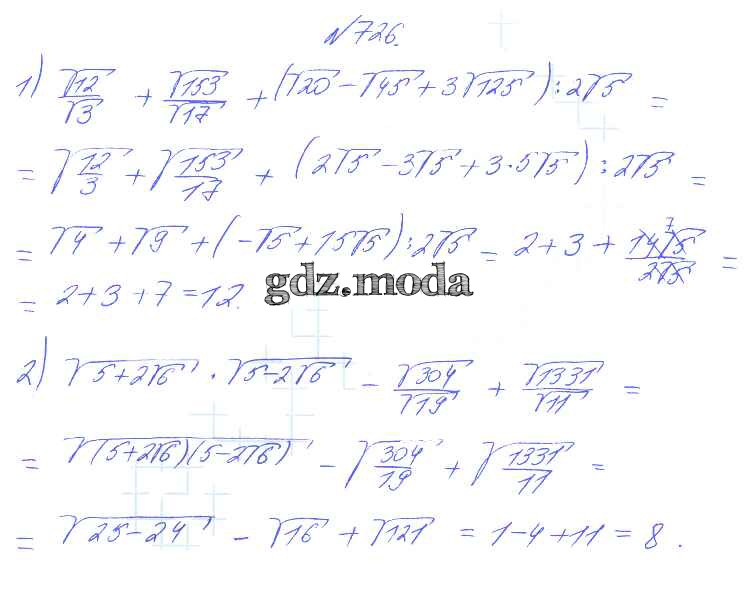 №726.
1) √12/√3 + √153/√17 + (√20 - √45 + 3√125) : 2√5 =
= √(12/3) + √(153/17) + (2√5 - 3√5 + 3·5√5) : 2√5 =
= √4 + √9 + (-√5 + 15√5) : 2√5 = 2 + 3 + 14√5/2√5 7 =
gdz.moda
= 2 + 3 + 7 = 12.
2) √(5+2√6) · √(5-2√6) - √304/√19 + √1331/√11 =
= √((5+2√6)(5-2√6)) - √(304/19) + √(1331/11) =
= √(25-24) - √16 + √121 = 1 - 4 + 11 = 8.